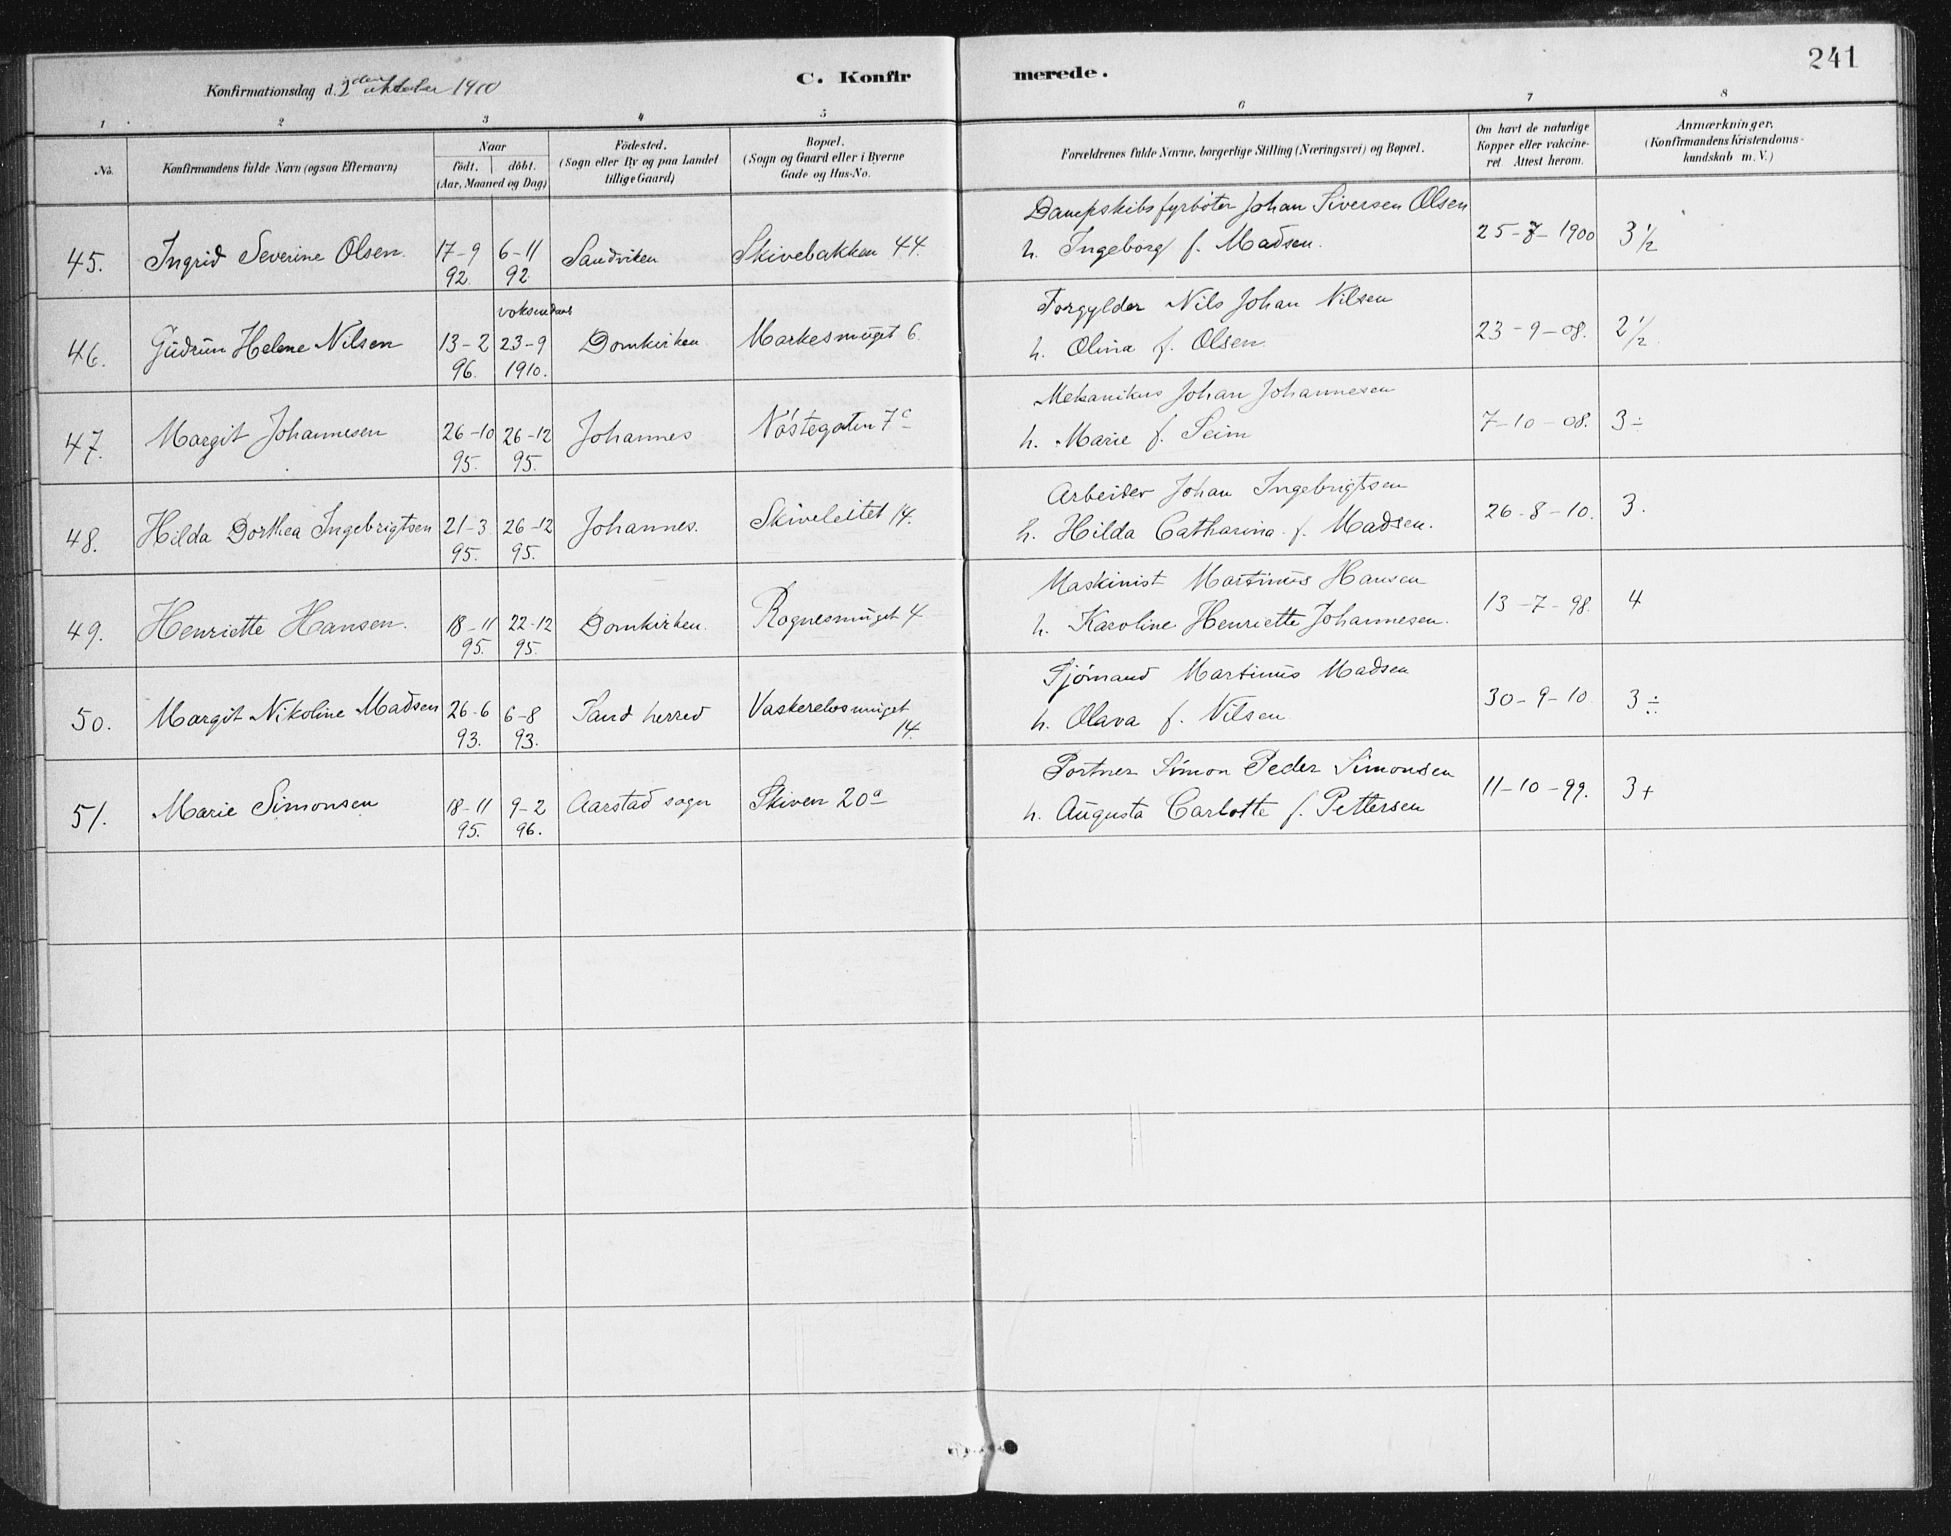 241
Konfirmationsdag d. 2den oktober 1910
C. Konfirmerede.
1 2 3 4 5 6 7 8
No.
Konfirmandens fulde Navn (ogsaa Efternavn)
Naar
födt. döbt.
(Aar, Maaned og Dag)
Födested.
(Sogn eller By og paa Landet
tillige Gaard)
Bopæl.
(Sogn og Gaard eller i Byerne
Gade og Hus-No.
Forældrenes fulde Navne, borgerlige Stilling (Næringsvei) og Bopæl.
Om havt de naturlige
Kopper eller vakcine-
ret. Attest herom.
Anmærkninger.
(Konfirmandens Kristendoms-
kundskab m. V.)
Dampskibsfyrbøter Johan Siversen Olsen
45. Ingrid Severine Olsen. 17-9 6-11 Sandviken Skivebakken 44. h. Ingeborg f. Madsen. 25-7-1900 3 1/2
92. 92.
voksendøbt
Forgylder Nils Johan Nilsen
46. Gudrun Helene Nilsen 13-2 23-9 Domkirken Markesmuget 6. h. Olina f. Olsen 23-9-08. 2 1/2.
96. 1910.
Mekanikus Johan Johannesen
47. Margit Johannesen 26-10 26-12 Johannes Nøstegaten 7c h. Marie f. Seim 7-10-08. 3 ÷
95. 95.
Arbeider Johan Ingebrigtsen
48. Hilda Dorthea Ingebrigtsen 21-3 26-12 Johannes. Skiveleitet 14. h. Hilda Catharina f. Madsen. 26-8-10. 3.
95. 95.
Maskinist Martinus Hansen
49. Henriette Hansen. 18-11 22-12 Domkirken. Rognesmuget 4 h. Karoline Henriette Johannesen. 13-7-98. 4
95. 95.
Sjømand Martinus Madsen
50. Margit Nikoline Madsen 26-6 6-8 Sand herred Vaskerelvsmuget h. Olava f. Nilsen 30-9-10 3 ÷
93. 93. 14.
Portner Simon Peder Simonsen
51. Marie Simonsen 18-11 9-2 Aarstad sogn Skiven 20a h. Augusta Carlotte f. Pettersen 11-10-99. 3+
95. 96.